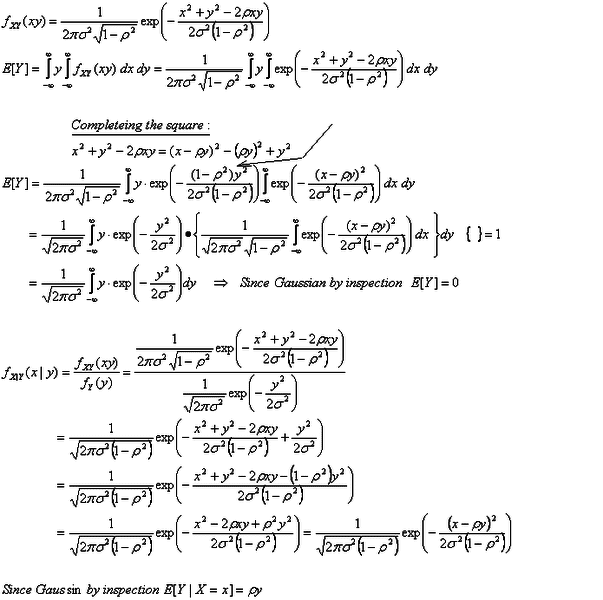 f_{XY}(xy) = \frac{1}{2\pi\sigma^2\sqrt{1-\rho^2}} \exp\left(-\frac{x^2+y^2-2\rho xy}{2\sigma^2(1-\rho^2)}\right)
E[Y] = \int_{-\infty}^{\infty} y \int_{-\infty}^{\infty} f_{XY}(xy) dx dy = \frac{1}{2\pi\sigma^2\sqrt{1-\rho^2}} \int_{-\infty}^{\infty} y \int_{-\infty}^{\infty} \exp\left(-\frac{x^2+y^2-2\rho xy}{2\sigma^2(1-\rho^2)}\right) dx dy
Completeing the square :
x^2 + y^2 - 2\rho xy = (x-\rho y)^2 - (\rho y)^2 + y^2
E[Y] = \frac{1}{2\pi\sigma^2\sqrt{1-\rho^2}} \int_{-\infty}^{\infty} y \cdot \exp\left(-\frac{(1-\rho^2)y^2}{2\sigma^2(1-\rho^2)}\right) \int_{-\infty}^{\infty} \exp\left(-\frac{(x-\rho y)^2}{2\sigma^2(1-\rho^2)}\right) dx dy
= \frac{1}{\sqrt{2\pi\sigma^2}} \int_{-\infty}^{\infty} y \cdot \exp\left(-\frac{y^2}{2\sigma^2}\right) \bullet \left\{ \frac{1}{\sqrt{2\pi\sigma^2}\sqrt{1-\rho^2}} \int_{-\infty}^{\infty} \exp\left(-\frac{(x-\rho y)^2}{2\sigma^2(1-\rho^2)}\right) dx \right\} dy { } = 1
= \frac{1}{\sqrt{2\pi\sigma^2}} \int_{-\infty}^{\infty} y \cdot \exp\left(-\frac{y^2}{2\sigma^2}\right) dy ⇒ Since Gaussian by inspection E[Y] = 0
f_{X|Y}(x | y) = \frac{f_{XY}(xy)}{f_Y(y)} = \frac{\frac{1}{2\pi\sigma^2\sqrt{1-\rho^2}} \exp\left(-\frac{x^2+y^2-2\rho xy}{2\sigma^2(1-\rho^2)}\right)}{\frac{1}{\sqrt{2\pi\sigma^2}} \exp\left(-\frac{y^2}{2\sigma^2}\right)}
= \frac{1}{\sqrt{2\pi\sigma^2(1-\rho^2)}} \exp\left(-\frac{x^2+y^2-2\rho xy}{2\sigma^2(1-\rho^2)} + \frac{y^2}{2\sigma^2}\right)
= \frac{1}{\sqrt{2\pi\sigma^2(1-\rho^2)}} \exp\left(-\frac{x^2+y^2-2\rho xy-(1-\rho^2)y^2}{2\sigma^2(1-\rho^2)}\right)
= \frac{1}{\sqrt{2\pi\sigma^2(1-\rho^2)}} \exp\left(-\frac{x^2-2\rho xy+\rho^2y^2}{2\sigma^2(1-\rho^2)}\right) = \frac{1}{\sqrt{2\pi\sigma^2(1-\rho^2)}} \exp\left(-\frac{(x-\rho y)^2}{2\sigma^2(1-\rho^2)}\right)
Since Gaus sin by inspection E[Y | X = x] = \rho y